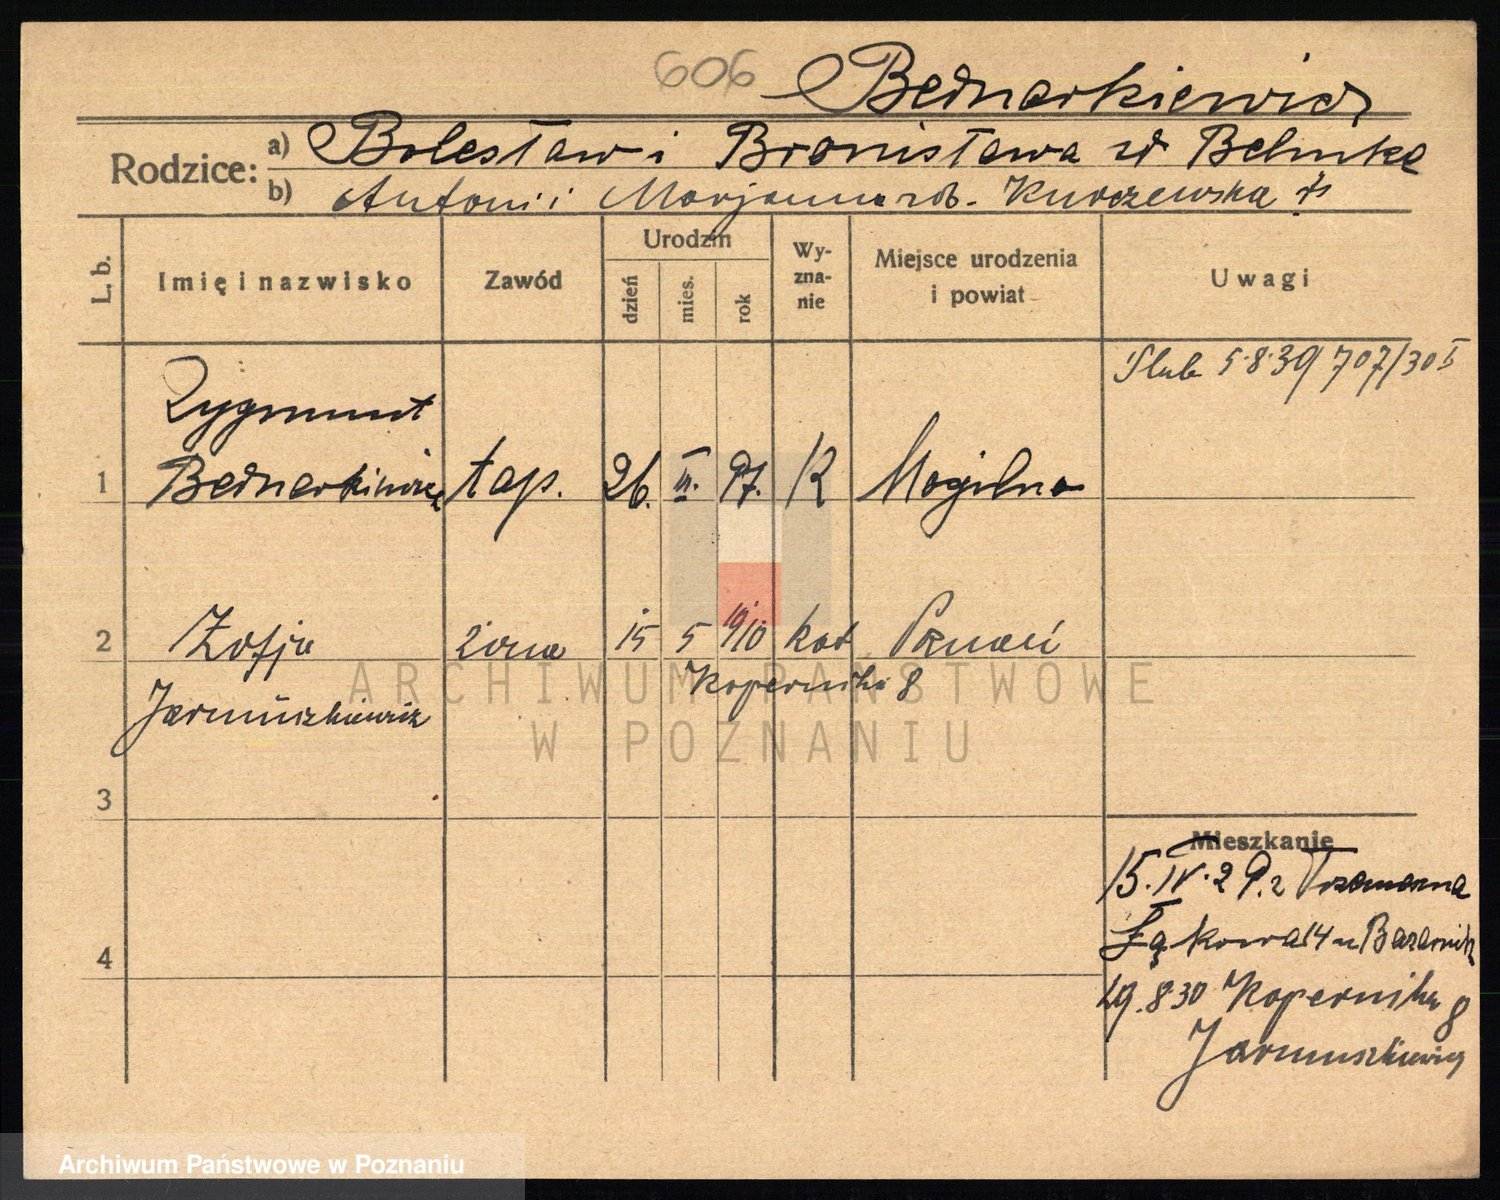 606 Bednarkiewicz
Rodzice: a) Bolesław i Bronisława
b) Antoni i Marjanna rob. Kurczewska
L. b. Imię i nazwisko Zawód Urodzin dzień mies. rok Wyznanie Miejsce urodzenia i powiat Uwagi
Ślub 5.8.30 707/30
Zygmunt
1 Bednarkiewicz tap. 26. III. 97. K Mogilno
2 Zofja żona 15 5 1910 kat Poznań
Kopernika 8
Jarmuszkiewicz
3
Mieszkanie
15. IV. 29. z Trzemeszna
4 Łąkowa 14 u
29.8.30 Kopernika 8
Jarmuszkiewicz
ARCHIWUM PAŃSTWOWE
W POZNANIU
Archiwum Państwowe w Poznaniu